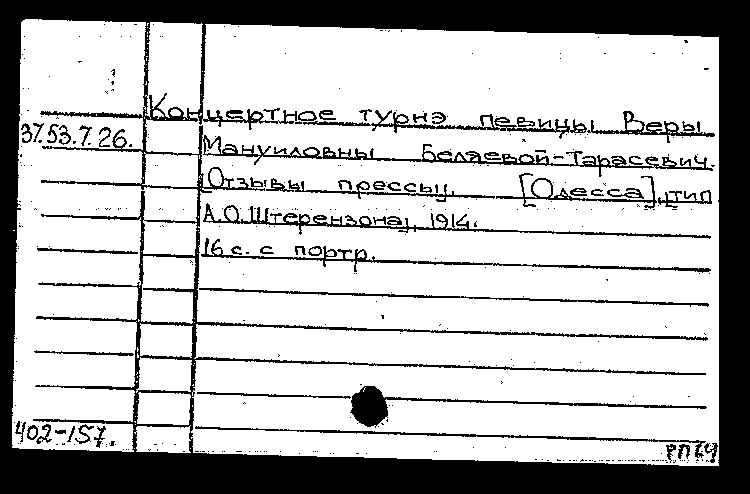 Концертное турнэ певицы Веры
37.53.7.26.
Мануиловны Беляевой-Тарасевич.
Отзывы прессы. [Одесса], тип
А.О.Штерензона, 1914.
16 с. с портр.
402-157.